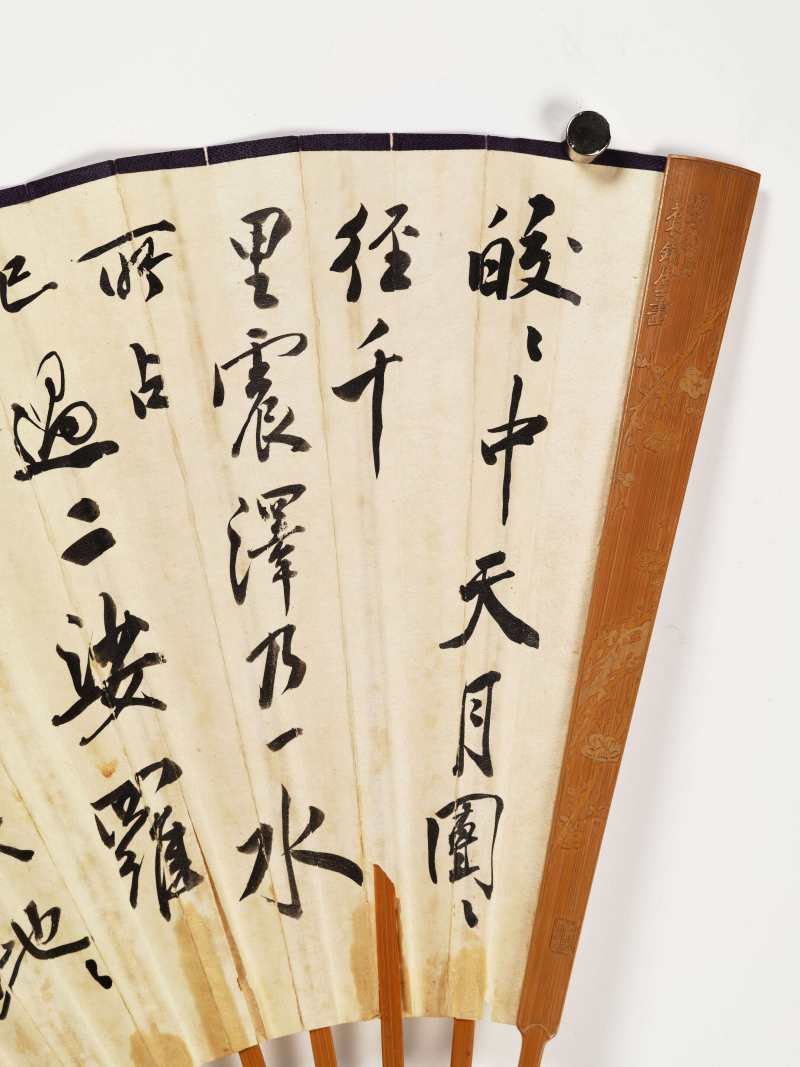 皎〻中天月團〻
徑千
里震澤乃一水
所占
已過二娑羅
地〻